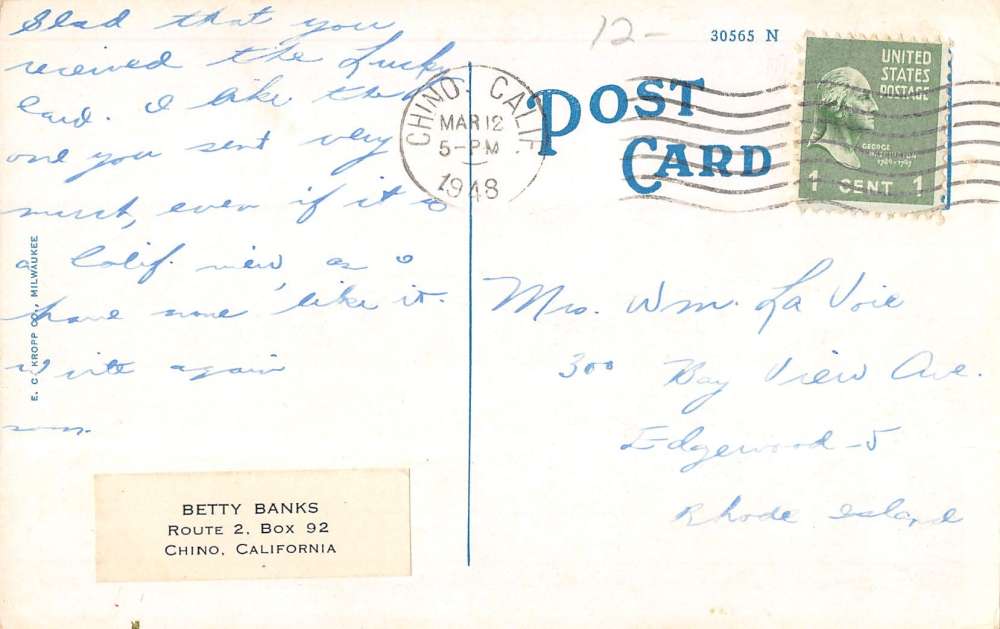 Glad that you
received the Lucky
Card. I like the
one you sent very
much, even if it is
a Calif. view as I
have none like it.
Write again
soon.
BETTY BANKS
ROUTE 2, BOX 92
CHINO, CALIFORNIA
E. C. KROPP CO., MILWAUKEE
12-
30565 N
CHINO, CALIF.
MAR 12
5-PM
1948
POST
CARD
UNITED
STATES
POSTAGE
GEORGE
WASHINGTON
1789-1797
1 CENT 1
Mrs. Wm. La Voie
300 Bay View Ave.
Edgewood-5
Rhode Island